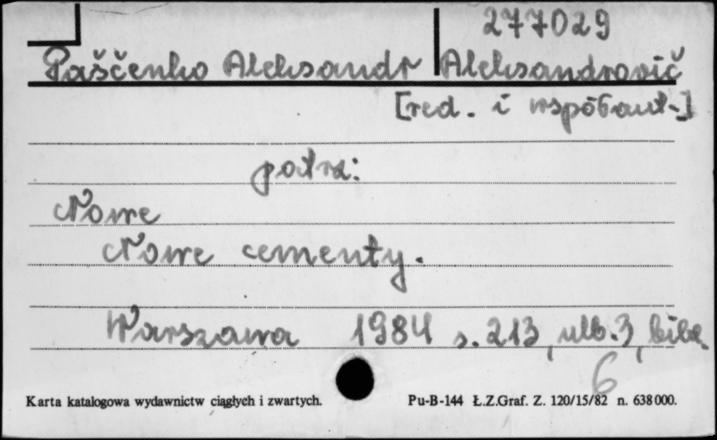 277029
Paščenko Aleksandr Aleksandrovič
[red. i współaut.]
patrz:
Nowe
Nowe cementy.
Warszawa 1984 s. 213, ulb. 3, bibl.
6
Karta katalogowa wydawnictw ciągłych i zwartych. Pu-B-144 Ł.Z.Graf. Z. 120/15/82 n. 638000.